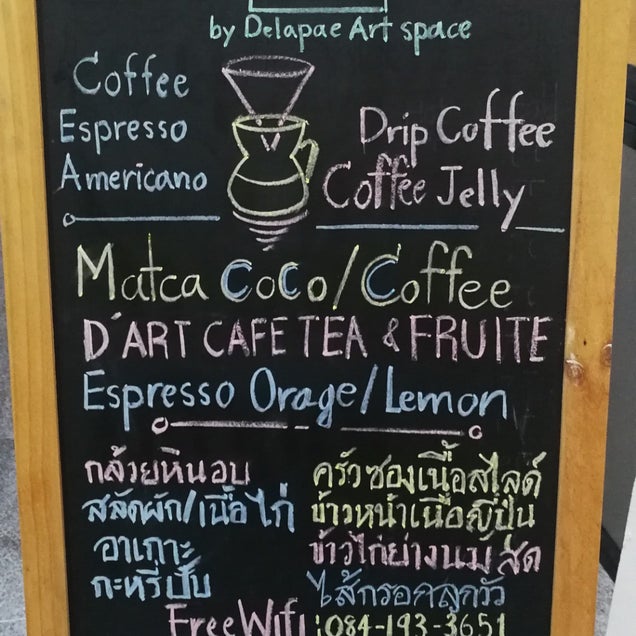 by Delapae Art space
Coffee
Espresso
Americano
Drip Coffee
Coffee Jelly
Matca CoCo/Coffee
D'ART CAFE TEA & FRUITE
Espresso Orage/Lemon
กล้วยหินอบ
สลัดผัก/เนื้อไก่
อาเกาะ
กะหรี่ปั๊บ
ครัวซองเนื้อสไลด์
ข้าวหน้าเนื้อญี่ปุ่น
ข้าวไก่ย่างนมสด
ไส้กรอกลูกวัว
Free Wifi :084-193-3651